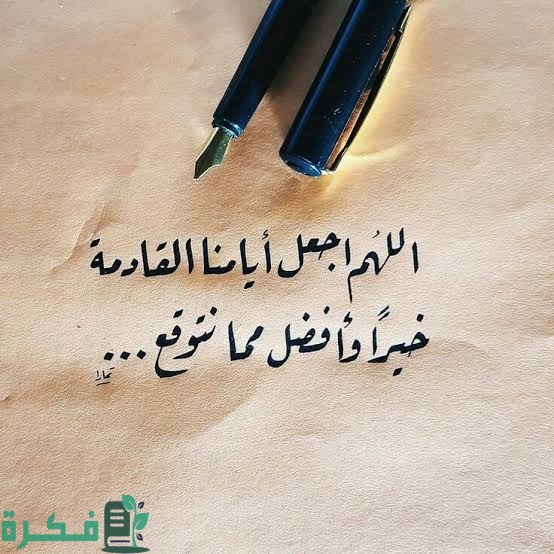 اللهُم اجعل أيامنا القادمة
خيراً وأفضل مما نتوقع...
فكرة